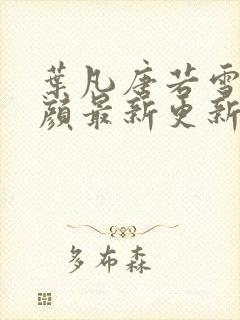 葉凡唐若雪
顔最新更新
多布森